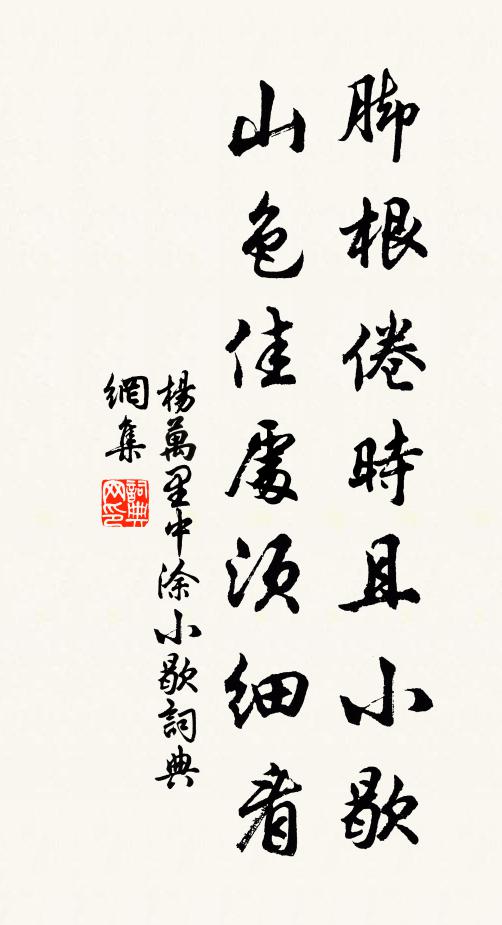 脚根倦時且小歇
山色佳處須細看
楊萬里中涂小歇詞典
網集
詞典
网印